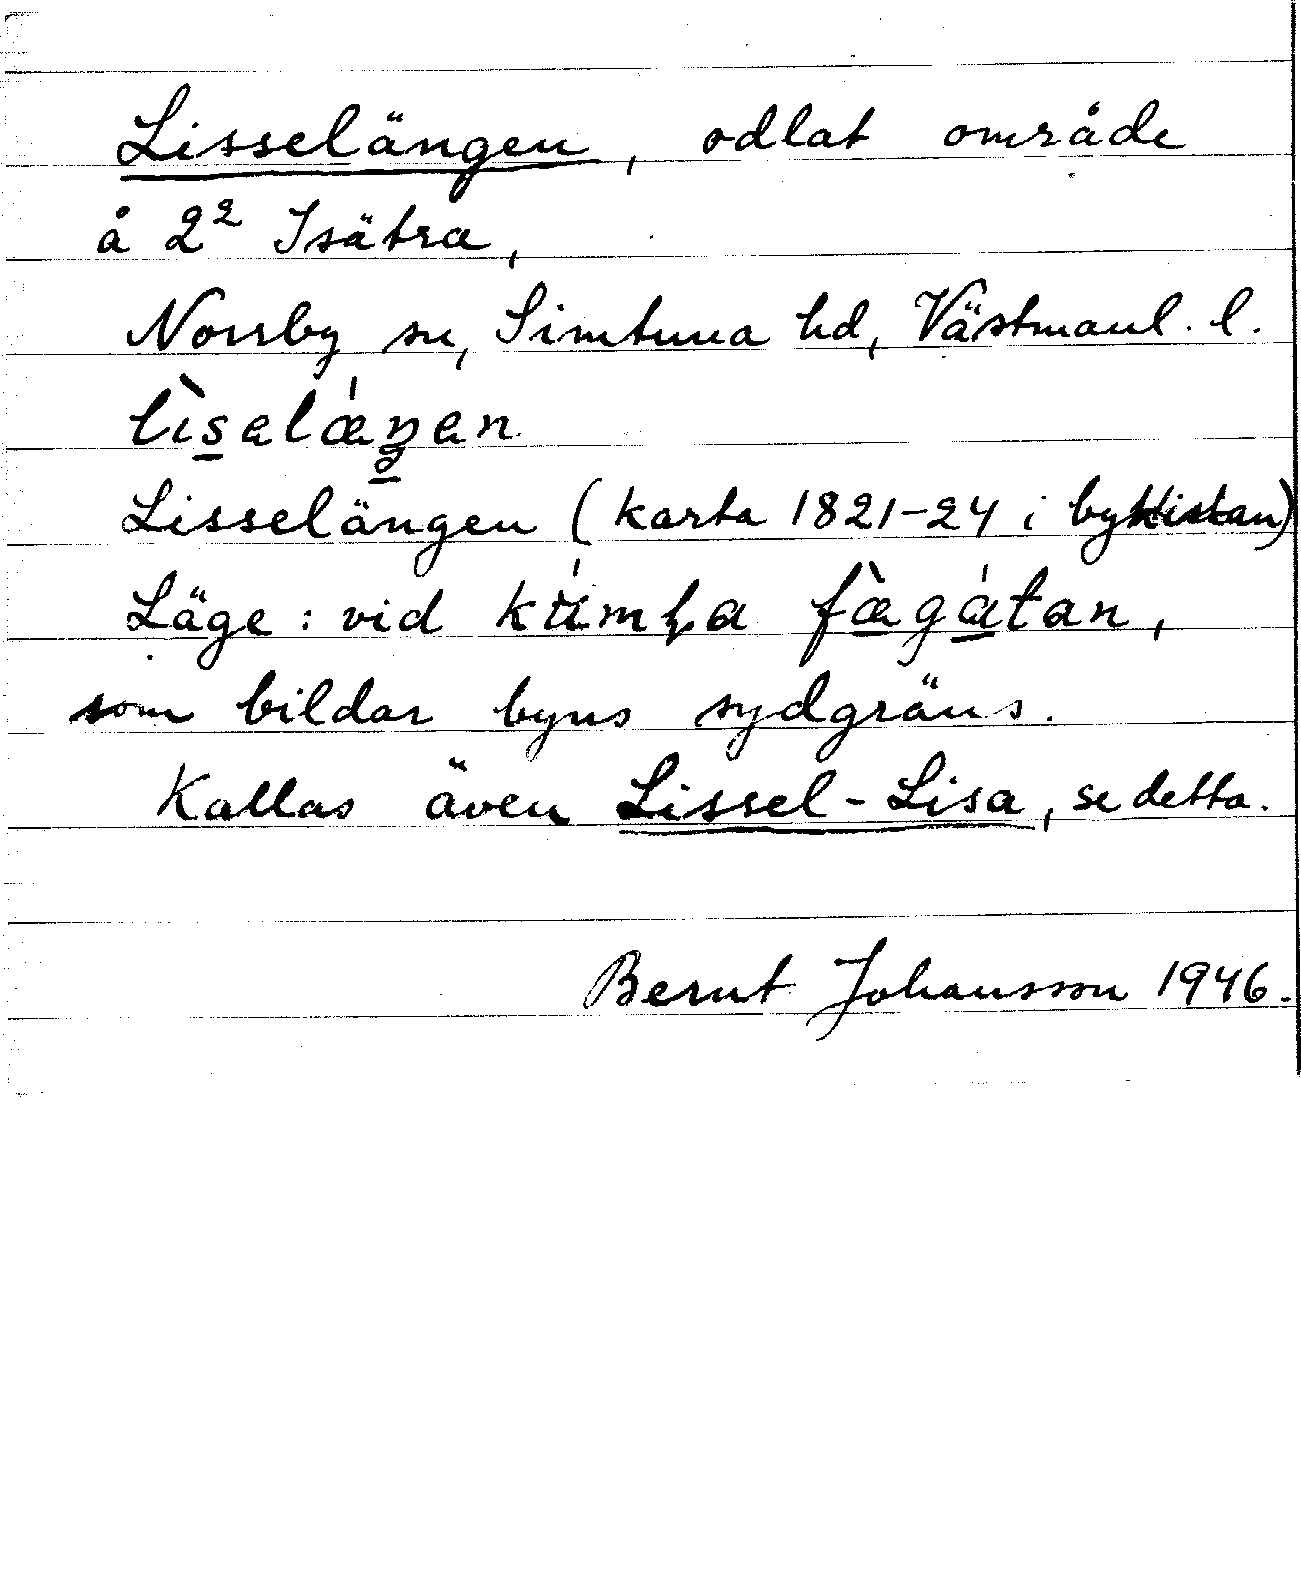 Lisselängen, odlat område
å 2² Isätra,
Norrby sn, Simtuna hd, Västmanl. l.
lìsalǽŋan
Lisselängen (karta 1821-24 i bykistan)
Läge: vid fǽgátan,
som bildar byns sydgräns.
Kallas även Lissel-Lisa, se detta.
Bernt Johansson 1946.